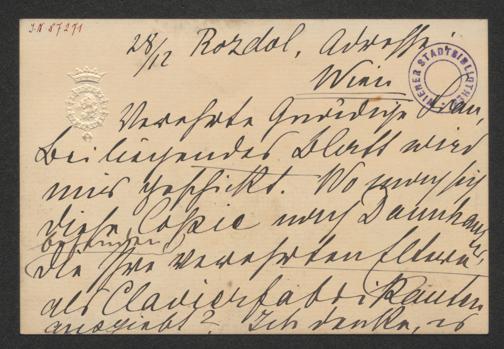 I.N. 87271
28/12 Rozdol, Adresse:
Wien
WIENER STADTBIBLIOTHEK
Verehrte Gnädige Frau,
Beiliegendes Blatt wird
mir geschickt. Wo mag sich
diese Copie nach Dannhauser
befinden
die Ihre verehrten Eltern
als Clavierfabrikanten
ausgiebt? Ich denke, es